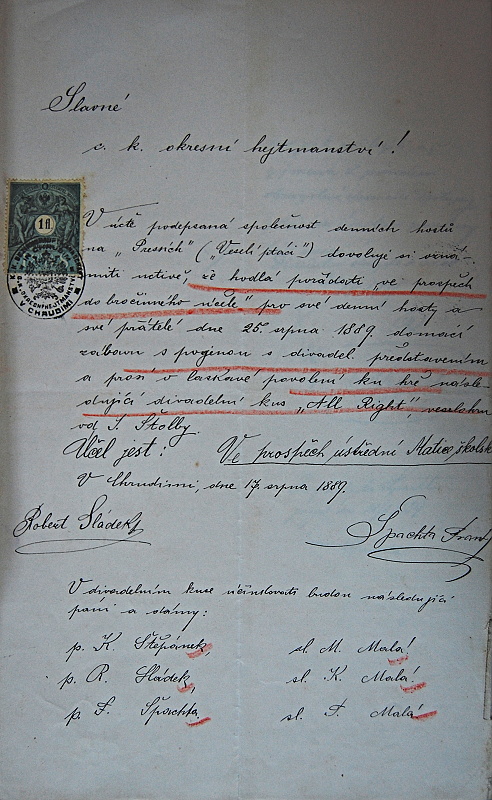 Slavné
c. k. okresní hejtmanství!
1 fl.
V CHRUDIMI
V úctě podepsaná společnost denních hostů
na „Pressích" („Veselí ptáci") dovoluje si ozná-
miti uctivě, že hodlá pořádati „ve prospěch
dobročinného účele" pro své denní hosty a
své přátele dne 25. srpna 1889. domácí
zábavu s pojenou s divadel. představením
a prosí o laskavé povolení ku hře násle-
dující divadelní kus „All Right", veselohra
od J. Štolby.
Účel jest: Ve prospěch ústřední Matice školsk
V Chrudimi, dne 17. srpna 1889.
Robert Sládek
Špachta Frant
V divadelním kuse účinkovati budou následující
páni a dámy:
p. K. Štěpánek, sl. M. Malá!
p. R. Sládek, sl. K. Malá!
p. F. Špachta, sl. F. Malá!